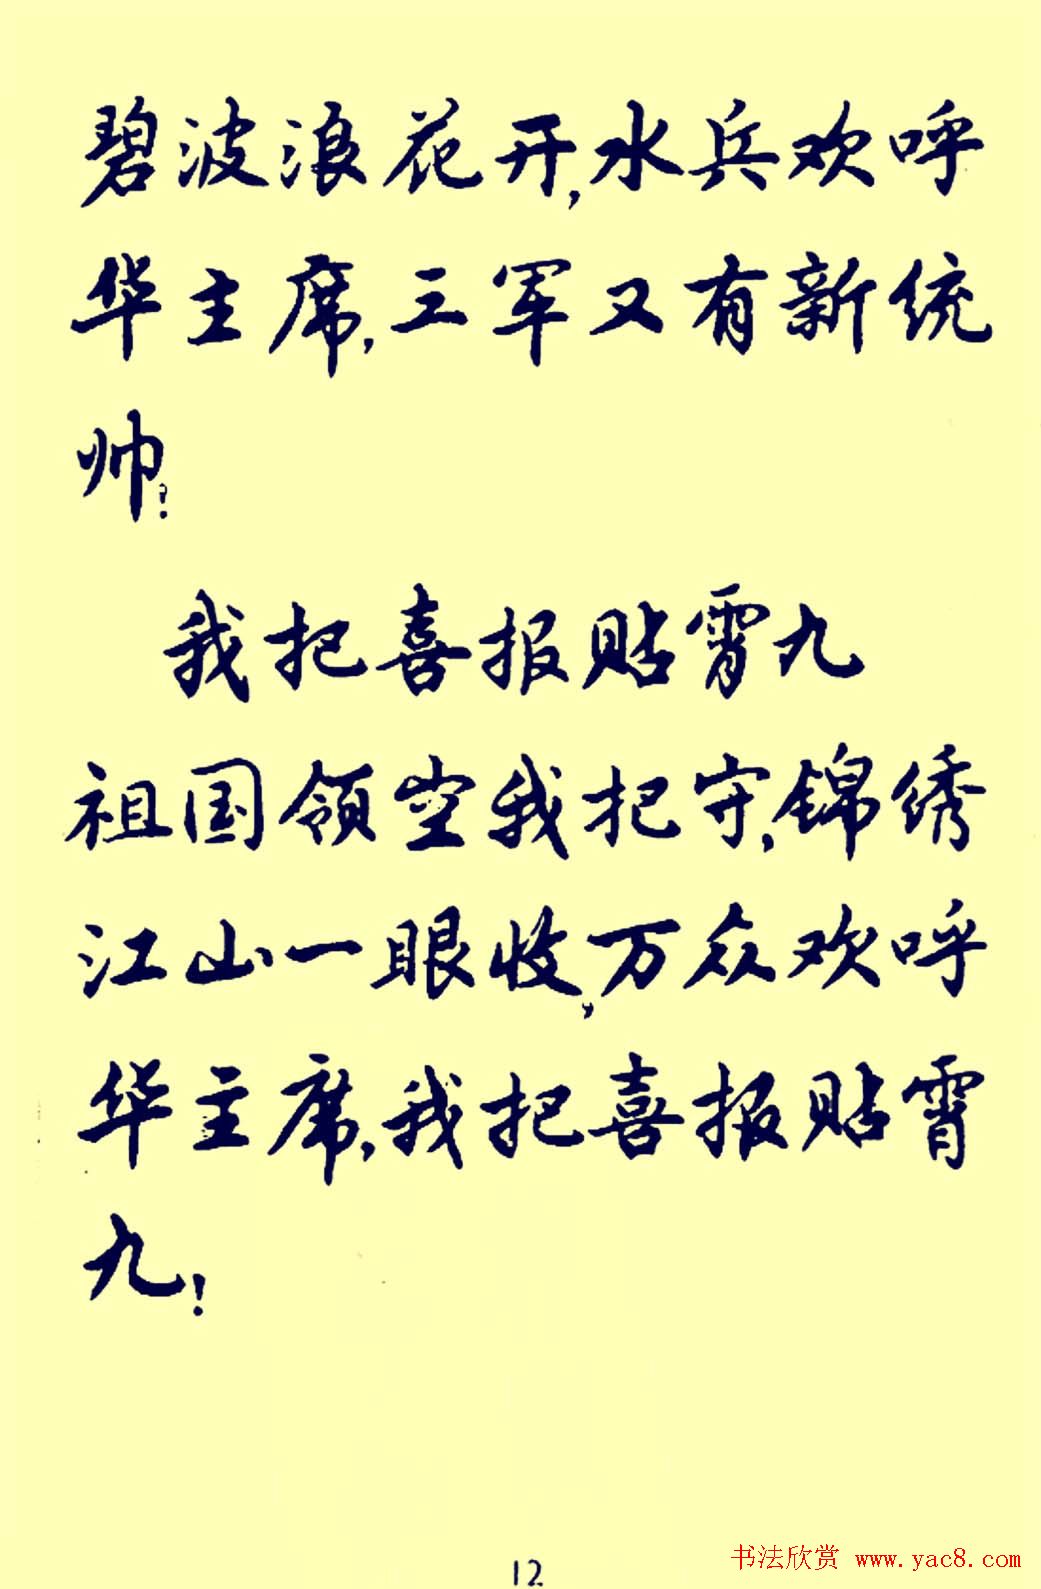 碧波浪花开,水兵欢呼
华主席,三军又有新统
帅!
我把喜报贴霄九
祖国领空我把守,锦绣
江山一眼收,万众欢呼
华主席,我把喜报贴霄
九!
12
书法欣赏 www.yac8.com